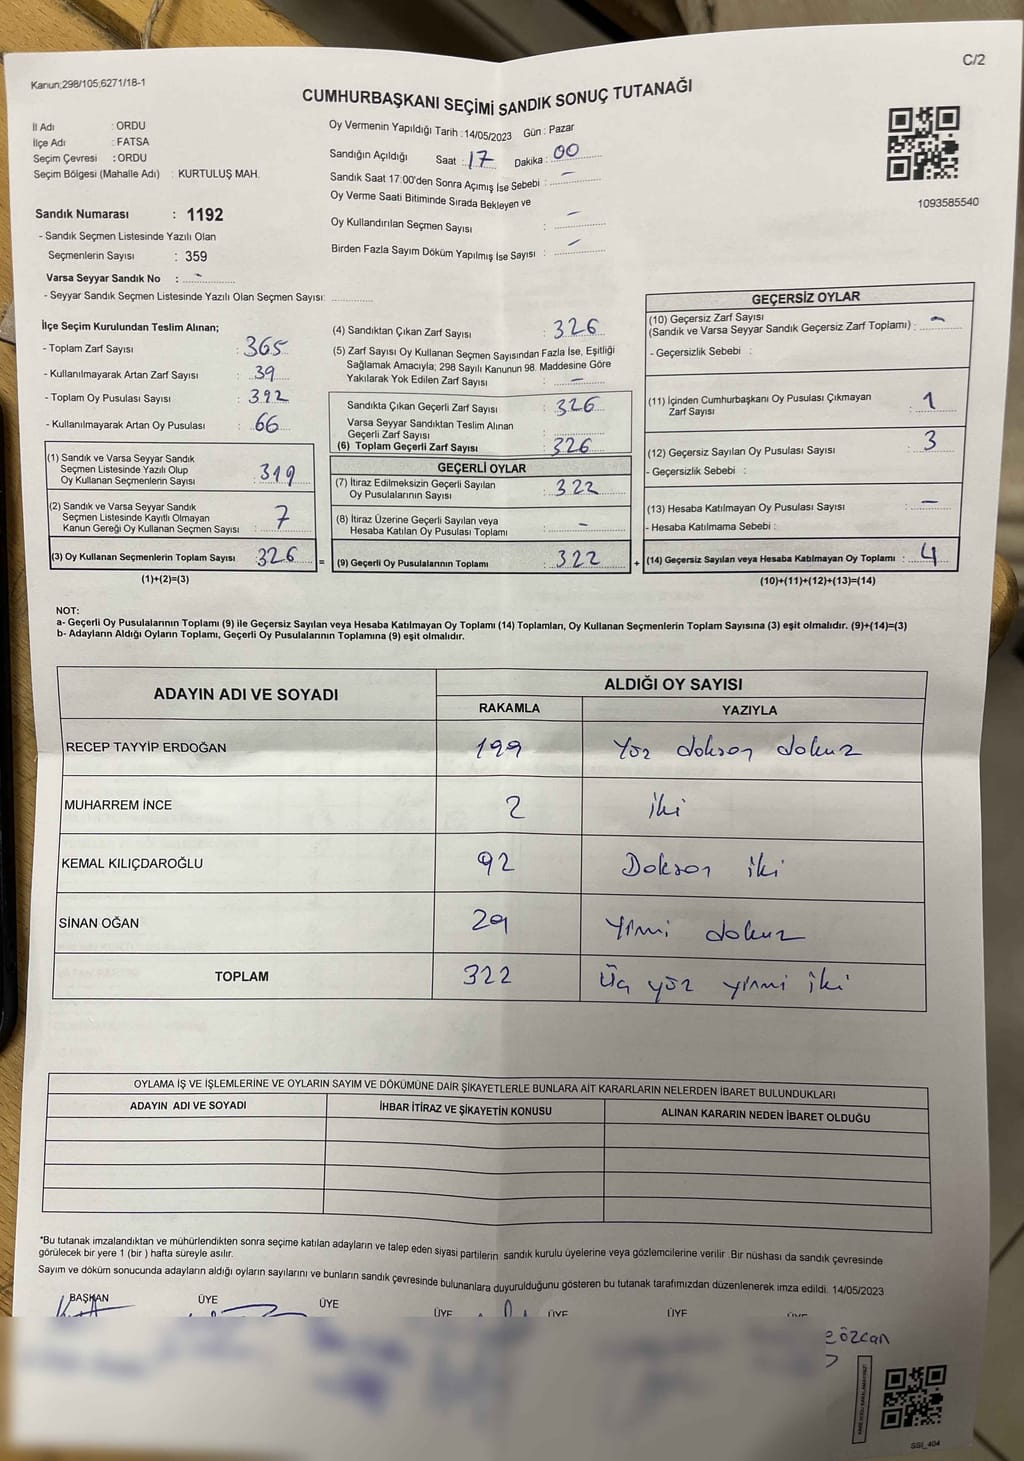 C/2
Kanun;298/105;6271/18-1
CUMHURBAŞKANI SEÇİMİ SANDIK SONUÇ TUTANAĞI
İl Adı : ORDU
İlçe Adı : FATSA
Seçim Çevresi : ORDU
Seçim Bölgesi (Mahalle Adı) : KURTULUŞ MAH.
Sandık Numarası : 1192
- Sandık Seçmen Listesinde Yazılı Olan
Seçmenlerin Sayısı : 359
Varsa Seyyar Sandık No : -
- Seyyar Sandık Seçmen Listesinde Yazılı Olan Seçmen Sayısı:
Oy Vermenin Yapıldığı Tarih : 14/05/2023 Gün : Pazar
Sandığın Açıldığı Saat : 17 Dakika : 00
Sandık Saat 17:00'den Sonra Açımış İse Sebebi : -
Oy Verme Saati Bitiminde Sırada Bekleyen ve
Oy Kullandırılan Seçmen Sayısı : -
Birden Fazla Sayım Döküm Yapılmış İse Sayısı : -
1093585540
İlçe Seçim Kurulundan Teslim Alınan;
- Toplam Zarf Sayısı : 365
- Kullanılmayarak Artan Zarf Sayısı : 39
- Toplam Oy Pusulası Sayısı : 392
- Kullanılmayarak Artan Oy Pusulası : 66
(1) Sandık ve Varsa Seyyar Sandık
Seçmen Listesinde Yazılı Olup
Oy Kullanan Seçmenlerin Sayısı : 319
(2) Sandık ve Varsa Seyyar Sandık
Seçmen Listesinde Kayıtlı Olmayan
Kanun Gereği Oy Kullanan Seçmen Sayısı : 7
(3) Oy Kullanan Seçmenlerin Toplam Sayısı : 326
(1)+(2)=(3)
(4) Sandıktan Çıkan Zarf Sayısı : 326
(5) Zarf Sayısı Oy Kullanan Seçmen Sayısından Fazla İse, Eşitliği
Sağlamak Amacıyla; 298 Sayılı Kanunun 98. Maddesine Göre
Yakılarak Yok Edilen Zarf Sayısı : -
Sandıkta Çıkan Geçerli Zarf Sayısı : 326
Varsa Seyyar Sandıktan Teslim Alınan
Geçerli Zarf Sayısı :
(6) Toplam Geçerli Zarf Sayısı : 326
GEÇERLİ OYLAR
(7) İtiraz Edilmeksizin Geçerli Sayılan
Oy Pusulalarının Sayısı : 322
(8) İtiraz Üzerine Geçerli Sayılan veya
Hesaba Katılan Oy Pusulası Toplamı : -
= (9) Geçerli Oy Pusulalarının Toplamı : 322 +
GEÇERSİZ OYLAR
(10) Geçersiz Zarf Sayısı
(Sandık ve Varsa Seyyar Sandık Geçersiz Zarf Toplamı) : -
- Geçersizlik Sebebi :
(11) İçinden Cumhurbaşkanı Oy Pusulası Çıkmayan
Zarf Sayısı : 1
(12) Geçersiz Sayılan Oy Pusulası Sayısı : 3
- Geçersizlik Sebebi :
(13) Hesaba Katılmayan Oy Pusulası Sayısı : -
- Hesaba Katılmama Sebebi :
(14) Geçersiz Sayılan veya Hesaba Katılmayan Oy Toplamı : 4
(10)+(11)+(12)+(13)=(14)
NOT:
a- Geçerli Oy Pusulalarının Toplamı (9) ile Geçersiz Sayılan veya Hesaba Katılmayan Oy Toplamı (14) Toplamları, Oy Kullanan Seçmenlerin Toplam Sayısına (3) eşit olmalıdır. (9)+(14)=(3)
b- Adayların Aldığı Oyların Toplamı, Geçerli Oy Pusulalarının Toplamına (9) eşit olmalıdır.
ADAYIN ADI VE SOYADI ALDIĞI OY SAYISI
RAKAMLA YAZIYLA
RECEP TAYYİP ERDOĞAN 199 Yüz doksan dokuz
MUHARREM İNCE 2 iki
KEMAL KILIÇDAROĞLU 92 Doksan iki
SİNAN OĞAN 29 Yirmi dokuz
TOPLAM 322 Üç yüz yirmi iki
OYLAMA İŞ VE İŞLEMLERİNE VE OYLARIN SAYIM VE DÖKÜMÜNE DAİR ŞİKAYETLERLE BUNLARA AİT KARARLARIN NELERDEN İBARET BULUNDUKLARI
ADAYIN ADI VE SOYADI İHBAR İTİRAZ VE ŞİKAYETİN KONUSU ALINAN KARARIN NEDEN İBARET OLDUĞU
*Bu tutanak imzalandıktan ve mühürlendikten sonra seçime katılan adayların ve talep eden siyasi partilerin sandık kurulu üyelerine veya gözlemcilerine verilir. Bir nüshası da sandık çevresinde
görülecek bir yere 1 (bir ) hafta süreyle asılır.
Sayım ve döküm sonucunda adayların aldığı oyların sayılarını ve bunların sandık çevresinde bulunanlara duyurulduğunu gösteren bu tutanak tarafımızdan düzenlenerek imza edildi. 14/05/2023
BAŞKAN ÜYE ÜYE ÜYE ÜYE ÜYE ÜYE
özcan
SSI_404